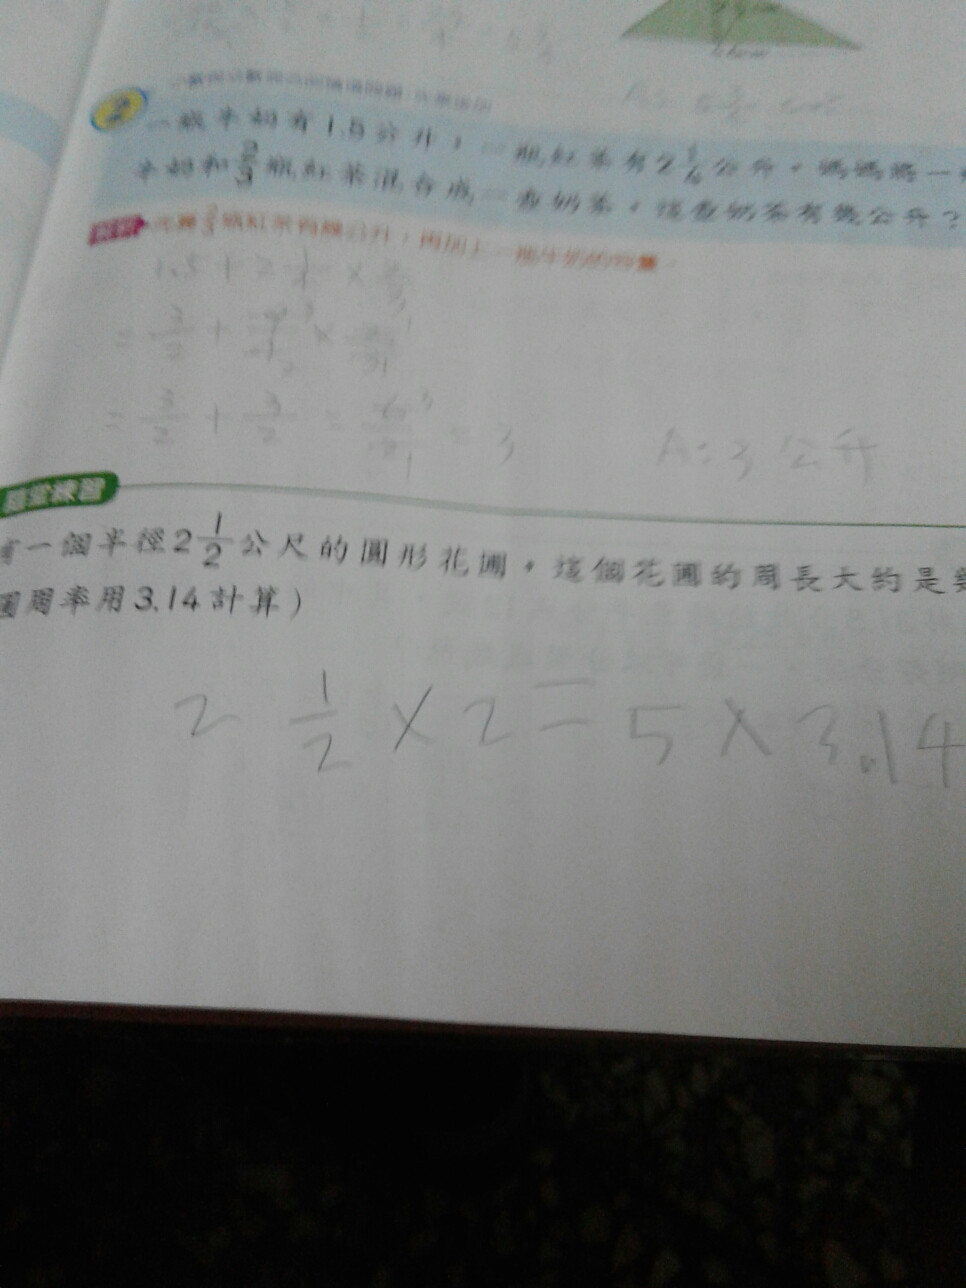 2
一瓶牛奶有1.5公升，一瓶紅茶有2 1/4 公升。媽媽將一
牛奶和 2/3 瓶紅茶混合成一壺奶茶，這壺奶茶有幾公升？
先算 2/3 瓶紅茶有幾公升，再加上一瓶牛奶的容量
1.5 + 2 1/4 × 2/3
= 3/2 + 9/4 × 2/3
= 3/2 + 3/2 = 6/2 = 3
A：3公升
隨堂練習
有一個半徑2 1/2 公尺的圓形花圃，這個花圃的周長大約是
圓周率用3.14計算）
2 1/2 × 2 = 5 × 3.14